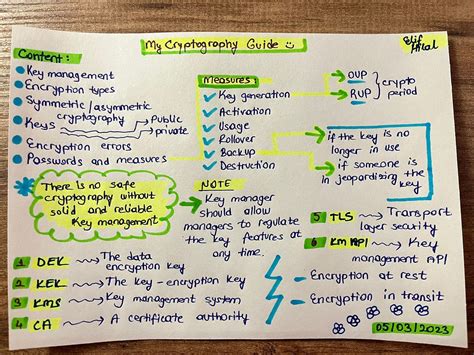 My Cryptography Guide
Elif
Hilal
Content:
Key management
Encryption types
Symmetric/asymmetric
cryptography
Keys
Public
private
Encryption errors
Passwords and measures
Measures:
Key generation
Activation
Usage
Rollover
Backup
Destruction
OUP
RUP
crypto
period
if the key is no
longer in use
if someone is
in jeopardizing the
key
There is no safe
cryptography without
solid and reliable
Key management
NOTE
Key manager
should allow
managers to regulate
the key features at
any time.
1 DEK → The data
encryption key
2 KEK → The key-encryption key
3 KMS → Key management system
4 CA → A certificate authority
5 TLS → Transport
layer security
6 KM API → Key
management API
Encryption at rest
Encryption in transit
05/03/2023